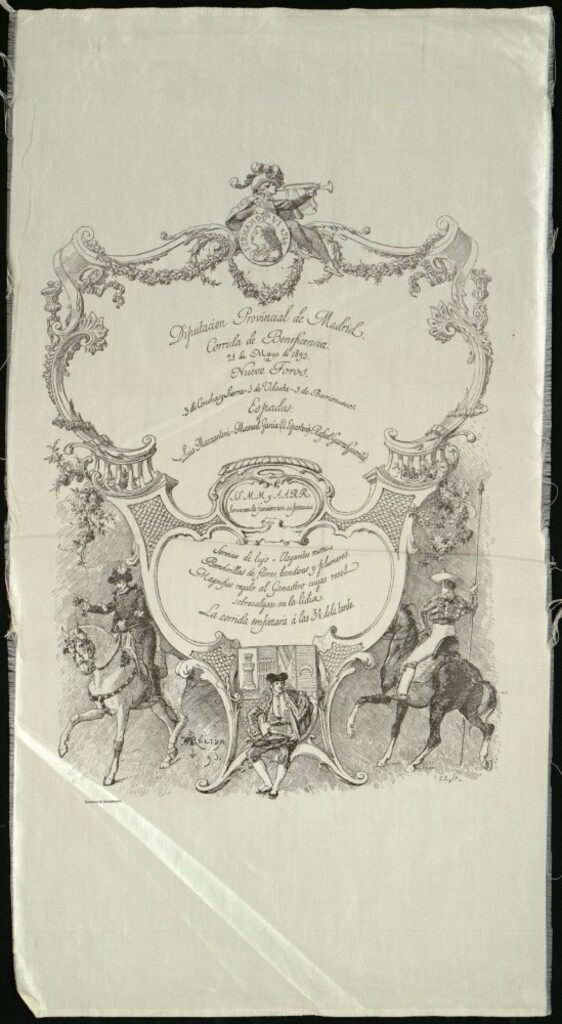 Diputacion Provincial de Madrid.
Corrida de Beneficencia.
21 de Mayo de 1893.
Nueve Toros.
3 de Concha y Sierra - 3 de Udaeta - 3 de
Espadas.
Luis Mazzantini - Manuel García (El Espartero) - Rafael Guerra
S.S. M.M. y A.A. R.R.
la funcion con su presencia
Servicio de lujo - Elegantes moñas
Banderillas de flores, banderas y plumeros.
Magnifico regalo al Ganadero cuyas reses
sobresalgan en la lidia.
La corrida empezará á las 3½ de la tarde.
93